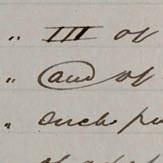 " III of
" and of
" such pu